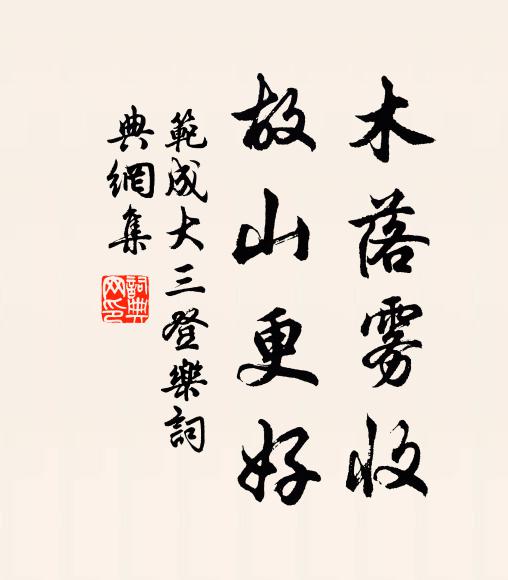 木落雾收
故山更好
範成大三登樂詞
典網集
詞典网印